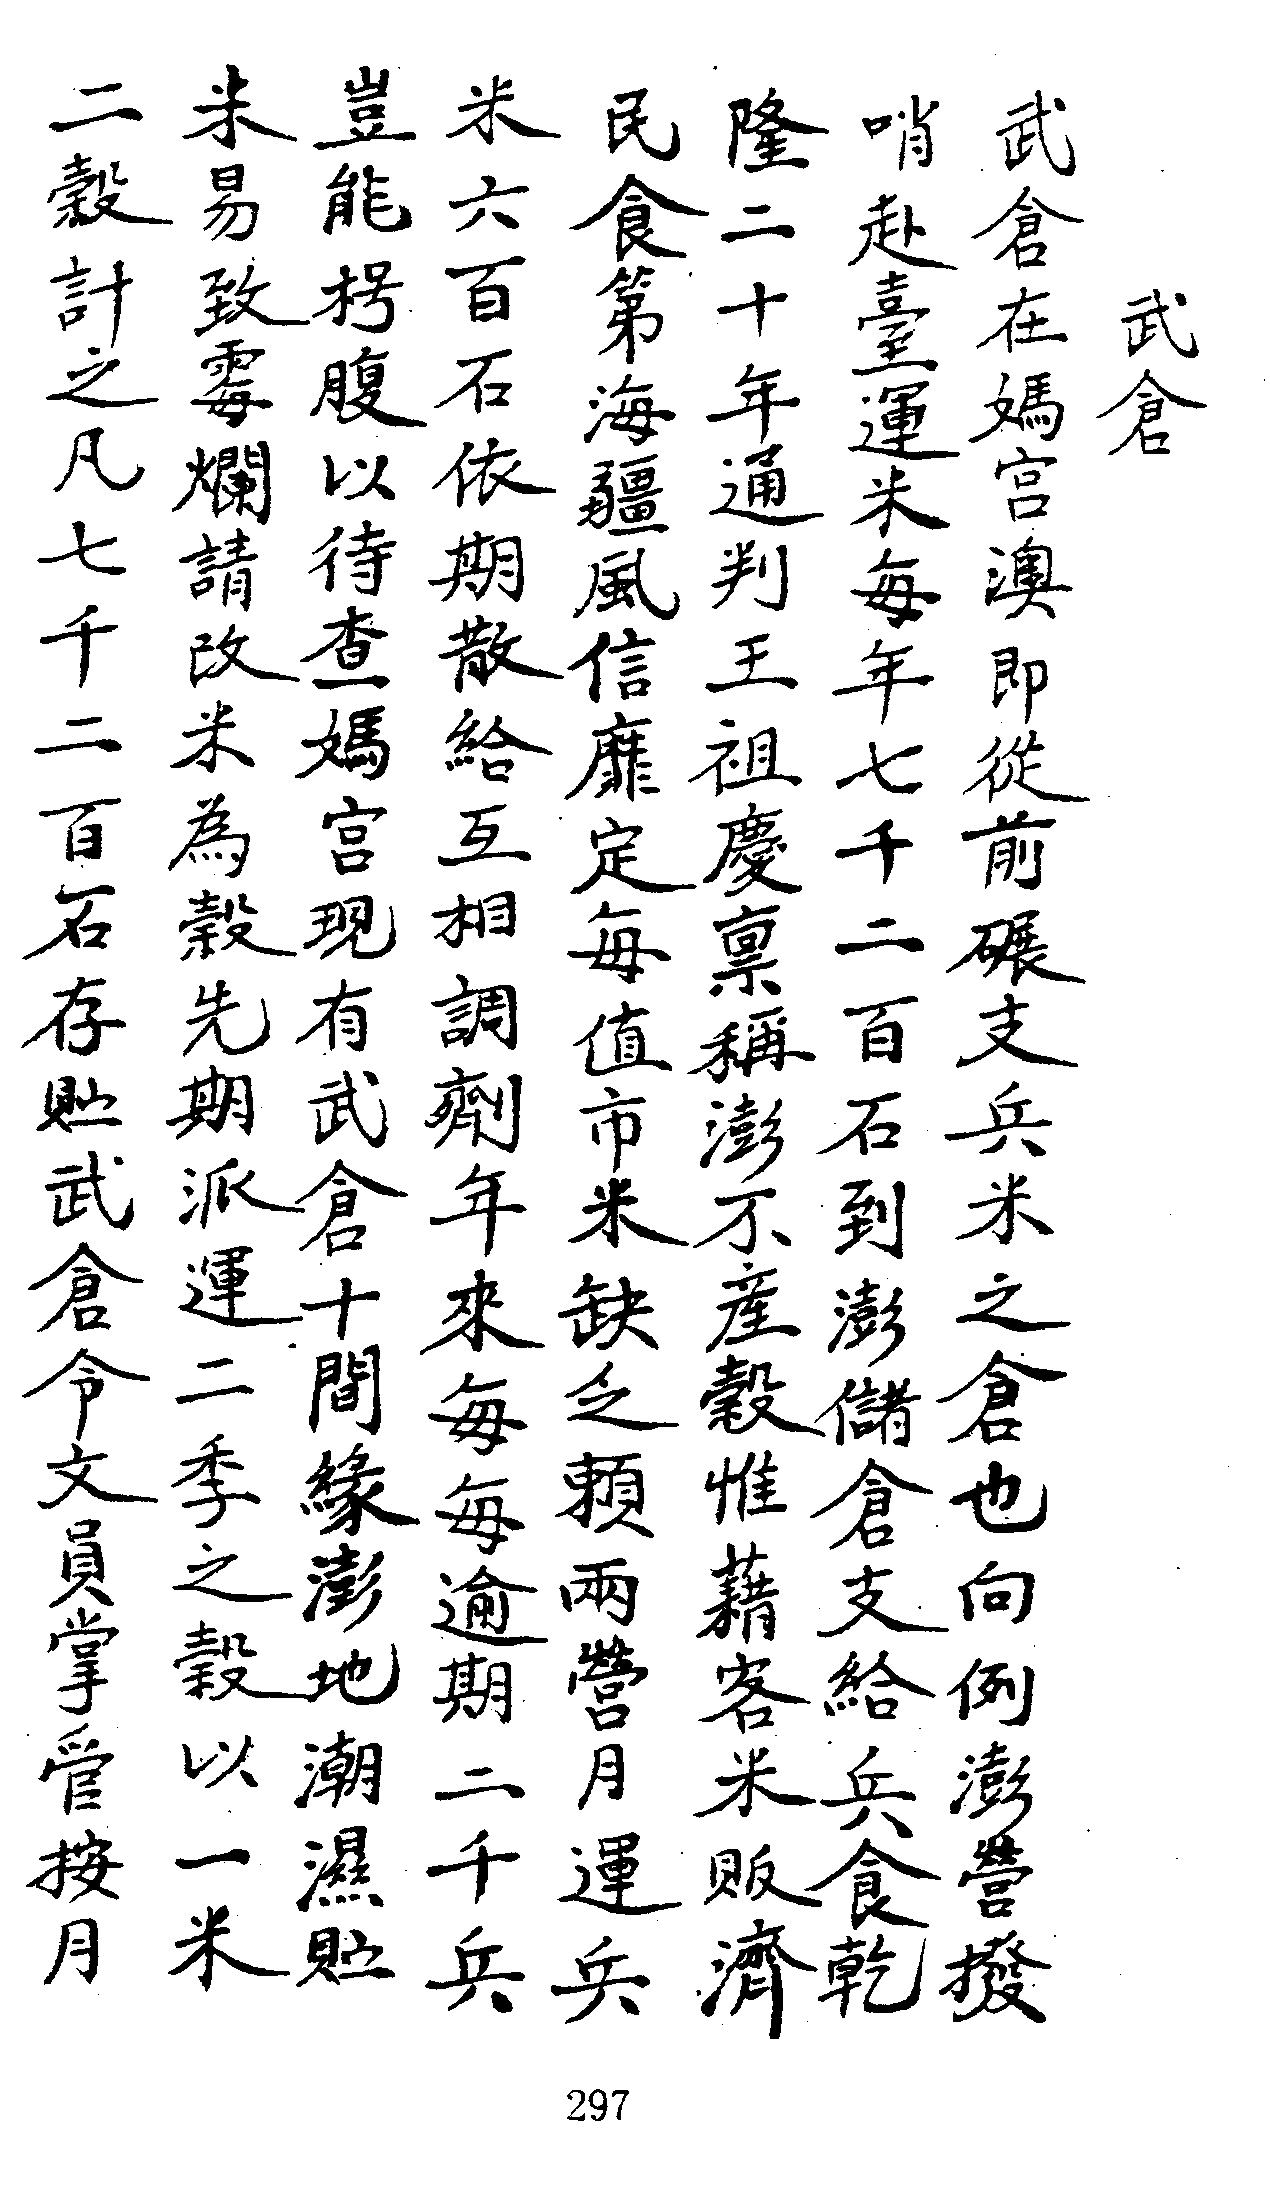 武倉
武倉在媽宮澳即從前碾支兵米之倉也向例澎營撥
哨赴臺運米每年七千二百石到澎儲倉支給兵食乾
隆二十年通判王祖慶稟稱澎不產穀惟藉客米販濟
民食第海疆風信靡定每值市米缺乏賴兩營月運兵
米六百石依期散給互相調劑年來每每逾期二千兵
豈能枵腹以待查媽宮現有武倉十間緣澎地潮濕貯
米易致霉爛請改米為穀先期派運二季之穀以一米
二穀計之凡七千二百石存貯武倉令文員掌管按月
297